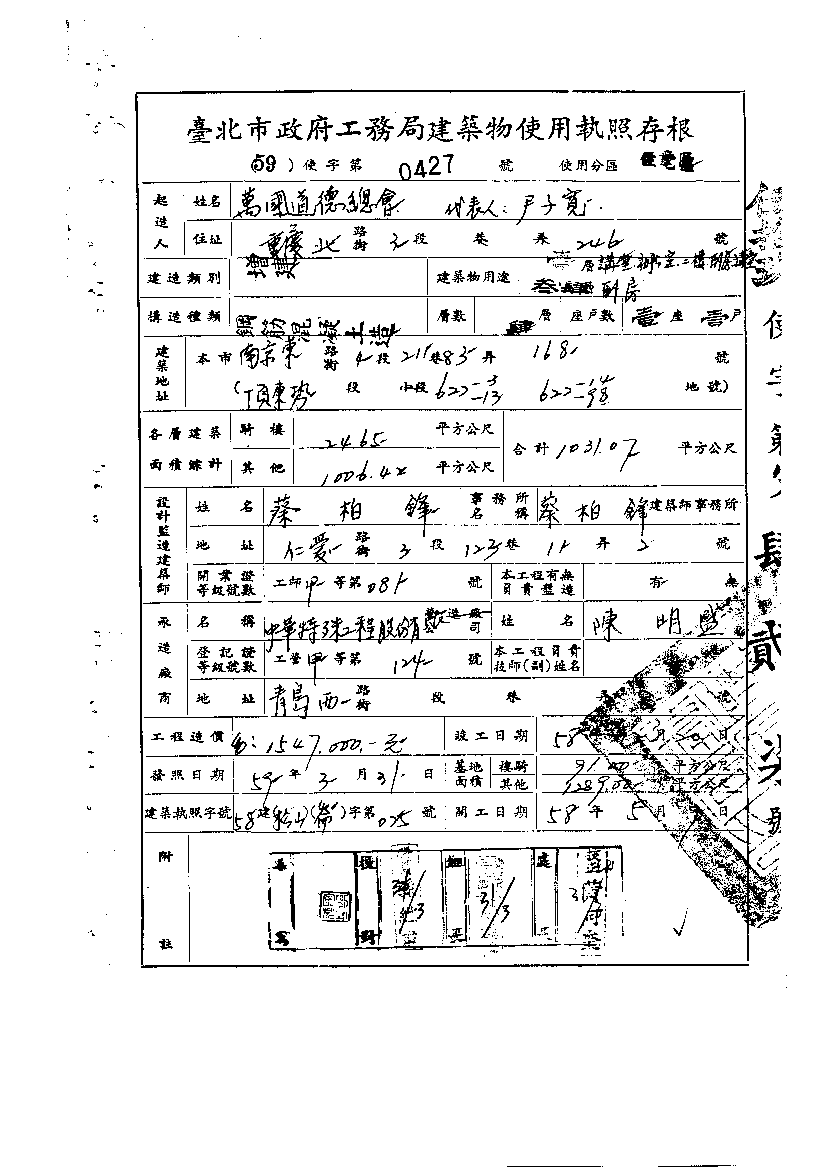 臺北市政府工務局建築物使用執照存根
(59)使字第 0427 號 使用分區 住宅區
起造人 姓名 萬國道德總會 代表人:尹子寬
住址 重慶北 路街 3 段 巷 弄 246 號
建造類別 增建 建築物用途 壹層講堂辦公室二樓
叁肆 厨房
構造種類 鋼筋混凝土造 層數 肆 層 座戶數 壹 座 壹 戶
建築地址 本市 南京東 路街 4 段 211 巷 83 弄 168 號
(頂東勢 段 小段 622-3 -13 622-14 -98 地號)
各層建築面積綜計 騎樓 24.65 平方公尺 合計 1031.07 平方公尺
其他 1006.42 平方公尺
設計監造建築師 姓名 蔡柏鋒 事務所名稱 蔡柏鋒 建築師事務所
地址 仁愛 路街 3 段 123 巷 11 弄 2 號
開業證等級號數 工師 甲 等第 081 號 本工程有無負責監造 有 無
承造廠商 名稱 中華特殊工程股份有 營造廠司 姓名 陳明
登記證等級號數 工營 甲 等第 124 號 本工程負責技師(副)姓名
地址 青島西 路街 段 巷 弄 號
工程造價 1547,000.-元 竣工日期 58 年 月 日
發照日期 59 年 3 月 31 日 基地面積 騎樓 91.00 平方公尺
其他 1289.00 平方公尺
建築執照字號 58 建 (松山) 字第 025 號 開工日期 58 年 5 月 日
附註
校對
31/3
使字第
肆貳柒號